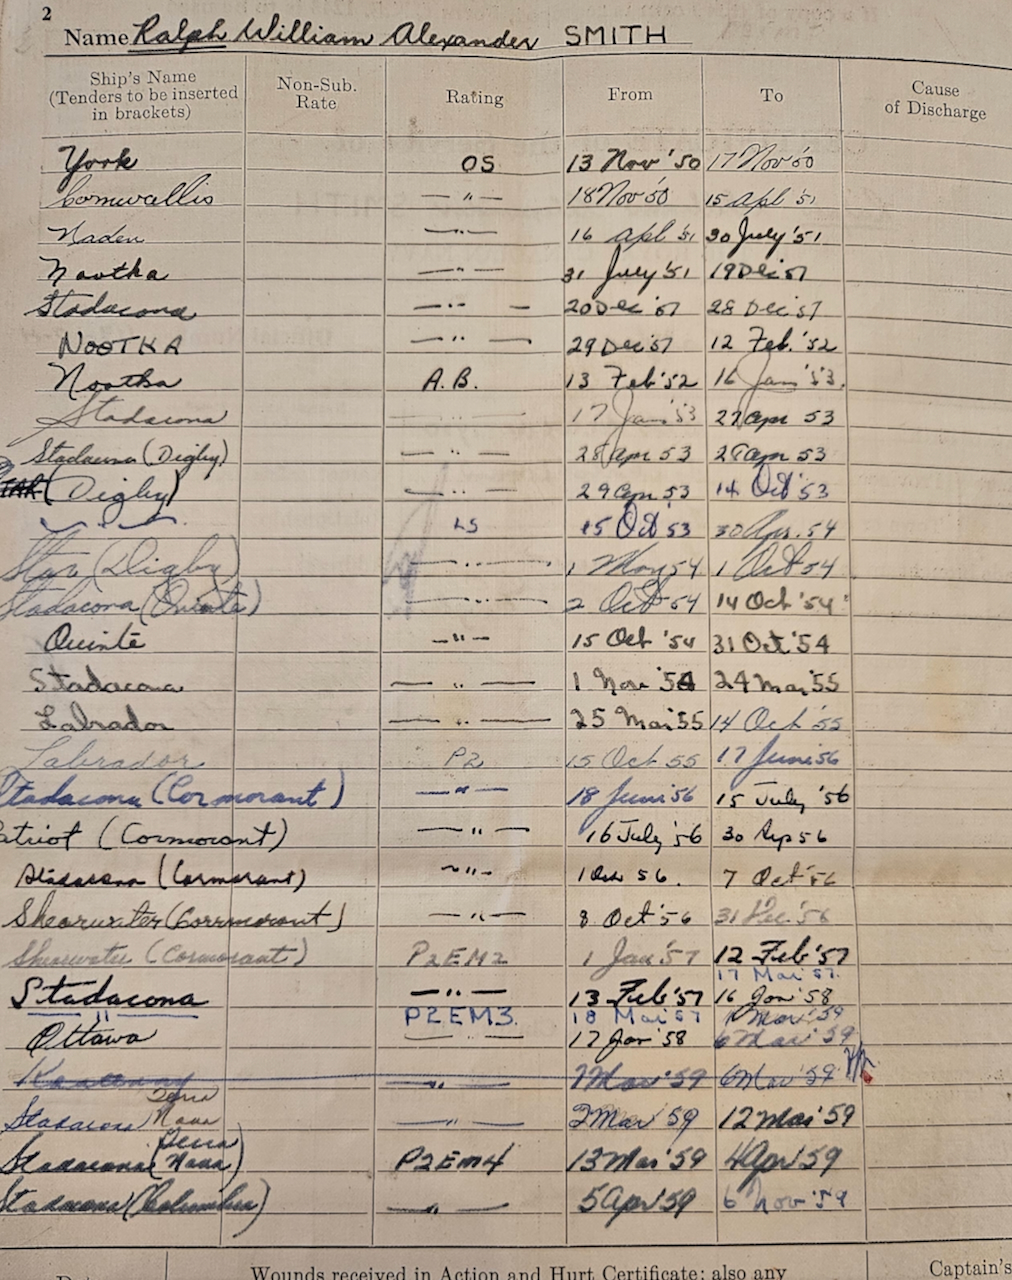 2
Name Ralph William Alexander SMITH
Ship's Name (Tenders to be inserted in brackets) Non-Sub. Rate Rating From To Cause of Discharge
York OS 13 Nov '50 17 Nov '50
Cornwallis — " — 18 Nov '50 15 Apl '51
Naden — " — 16 Apl '51 30 July '51
Nootka — " — 31 July '51 19 Dec '51
Stadacona — " — 20 Dec '51 28 Dec '51
NOOTKA — " — 29 Dec '51 12 Feb. '52
Nootka A.B. 13 Feb '52 16 Jan '53.
Stadacona — " — 17 Jan '53 27 Apr 53
Stadacona (Digby) — " — 28 Apr 53 28 Apr 53
(Digby) — " — 29 Apr 53 14 Oct '53
LS 15 Oct 53 30 Apr. 54
Star (Digby) — " — 1 May 54 1 Oct 54
Stadacona (Quinte) — " — 2 Oct 54 14 Oct '54
Quinte — " — 15 Oct '54 31 Oct '54
Stadacona — " — 1 Nov '54 24 Mar 55
Labrador — " — 25 Mar 55 14 Oct '55
Labrador P2 15 Oct 55 17 June 56
Stadacona (Cormorant) — " — 18 June 56 15 July '56
atriot (Cormorant) — " — 16 July '56 30 Sep 56
Stadacona (Cormorant) — " — 1 Oct 56. 7 Oct '56
Shearwater (Cormorant) — " — 8 Oct '56 31 Dec '56
Shearwater (Cormorant) P2EM2 1 Jan '57 12 Feb '57
17 Mar '57
Stadacona — " — 13 Feb '57 16 Jan '58
" P2EM3. 18 Mar '57 1 Mar '59
Ottawa — " — 17 Jan '58 6 Mar '59
Kootenay — " — 7 Mar '59 6 Mar '59
Stadacona Terra Nova — " — 2 Mar '59 12 Mar '59
Stadacona (Terra Nova) P2EM4 13 Mar '59 4 Apr '59
Stadacona (Columbia) — " — 5 Apr '59 6 Nov '59
Wounds received in Action and Hurt Certificate; also any Captain's